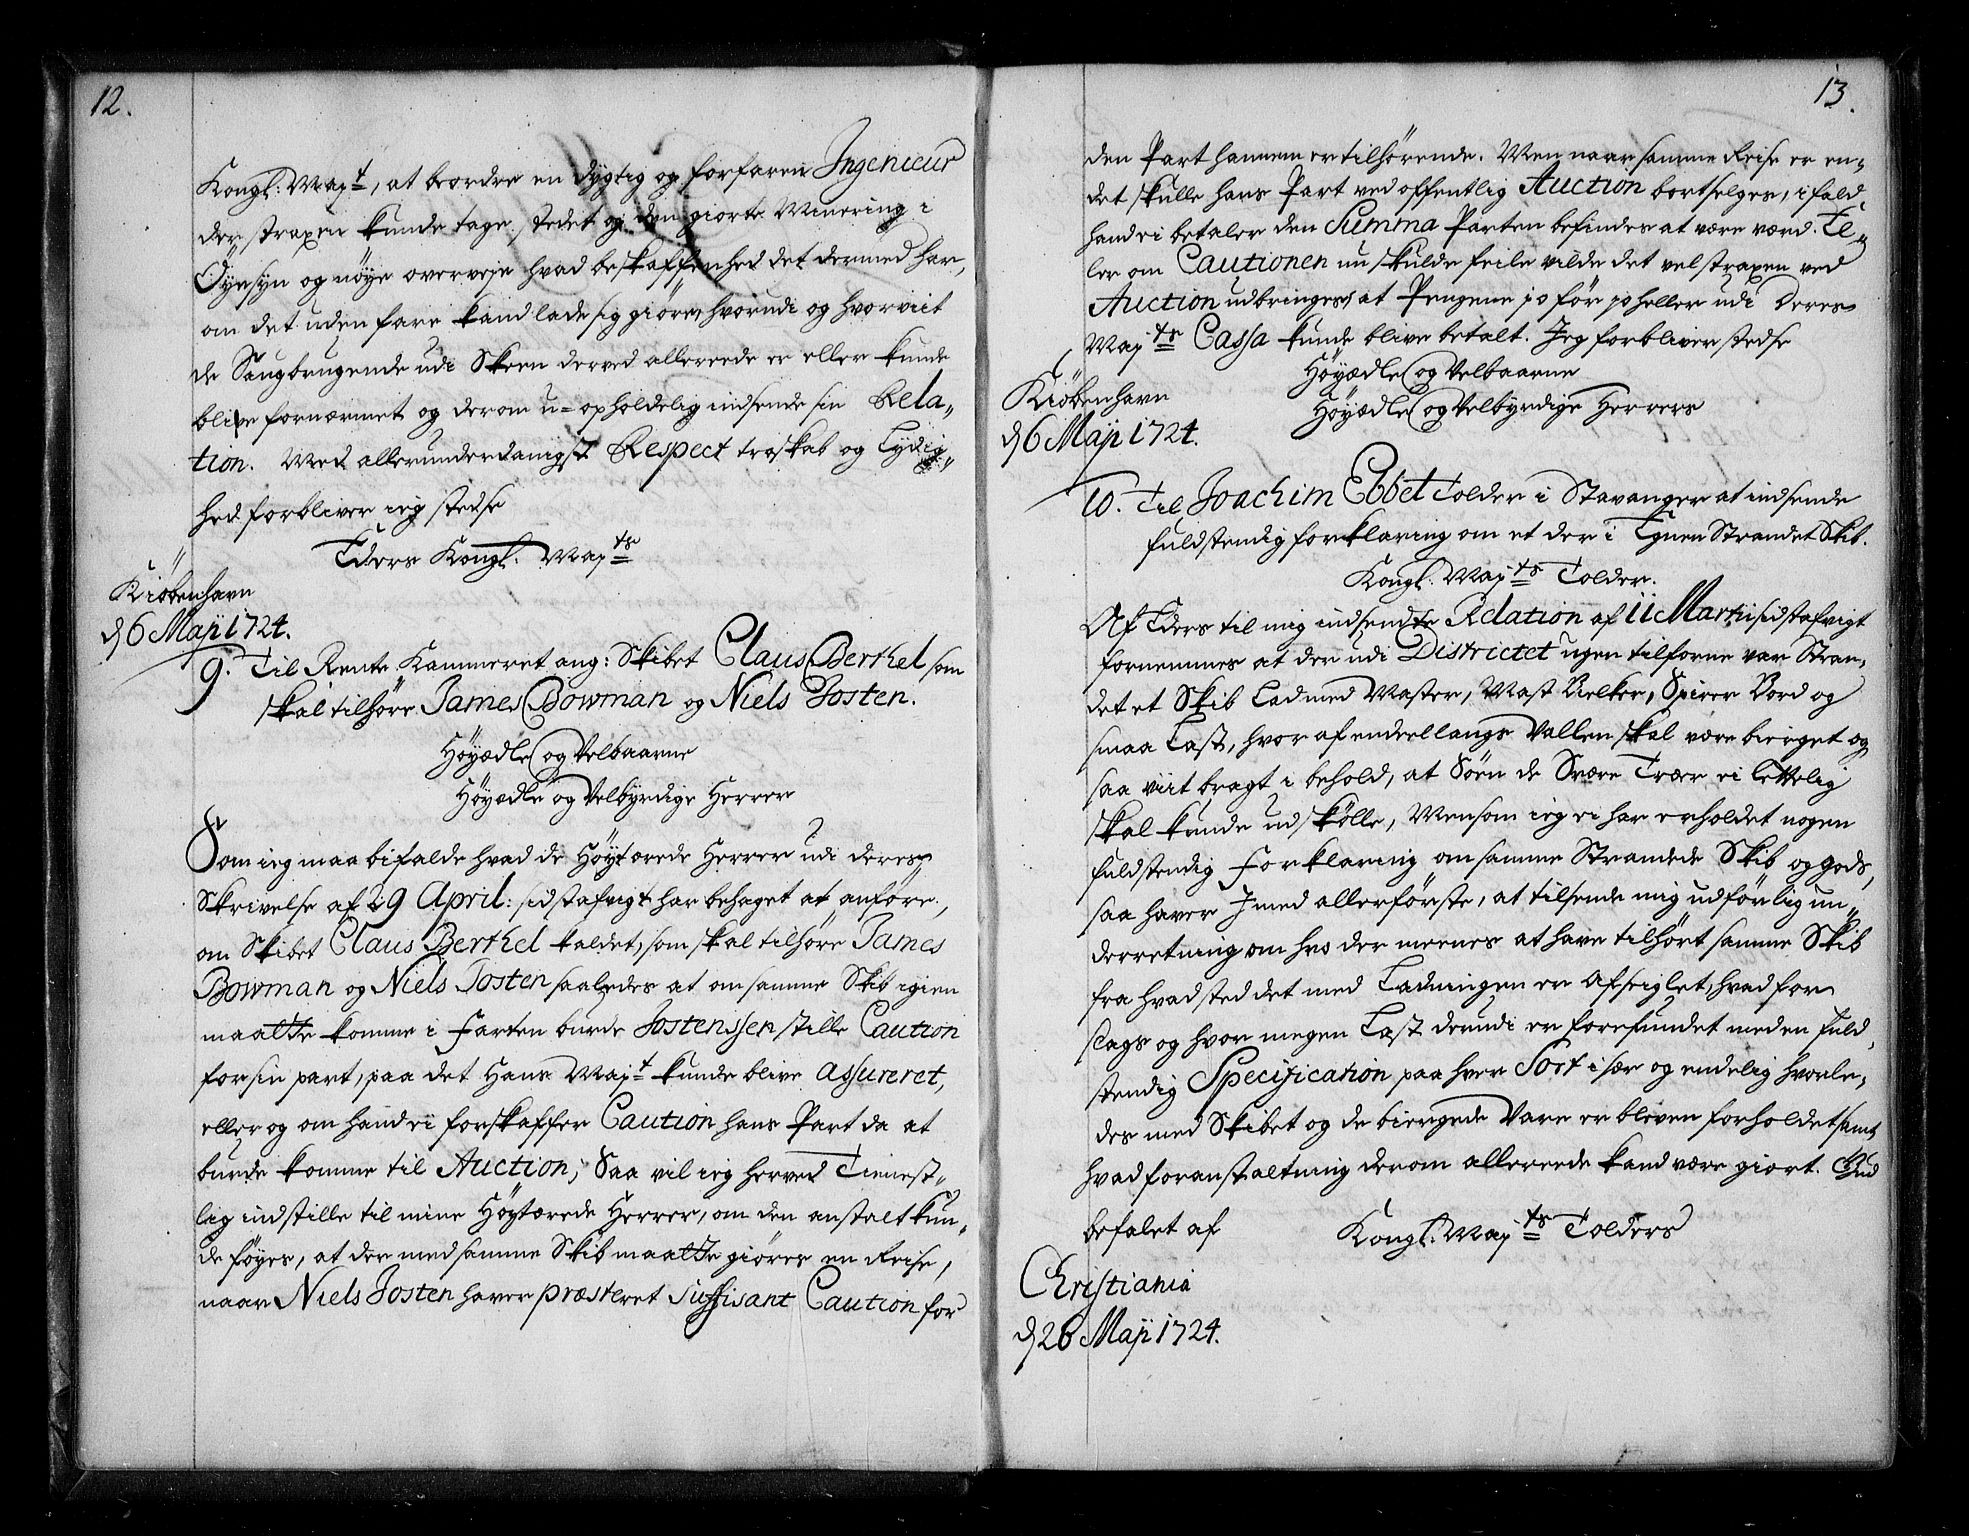 12.
Kongl: Mayt, at beordre en dygtig og forfaren Ingenieur
der straxen kunde tage stedet og den giorte Minering i
Øyesyn og nøye overveje hvad beskaffenhed det dermed har,
om det uden fare kand lade sig giøre, hvorudi og hvorviit
de Saugbrugende udi Skeen derved allereede er eller kunde
blive fornærmet og derom u-opholdelig indsende sin Rela„
tion. Med allerunderdanigst Respect troskab og Lydig„
hed forbliver ieg stedse
Eders Kongl. Mayts
Kiöbenhavn
d 6 Maji 1724.
9. Til Rente Kammeret ang: Skibet Claus Berthel som
skal tilhøre James Bowman og Niels Josten.
Høyædle og Velbaarne
Høyædle og Velbyrdige Herrer
Som ieg maa bifalde hvad de Høytærede Herrer udi deres
Skrivelse af 29 April: sidstafvigt har behaget at anføre,
om Skibet Claus Berthel kaldet, som skal tilhøre James
Bowman og Niels Josten saaledes at om samme Skib igien
maatte komme i Farten burde Jostenssen stille Caution
for sin part, paa det Hans Mayt kunde blive assureret,
eller og om hand ei forskaffer Caution hans Part da at
burde komme til Auction; Saa vil ieg herved Tienest„
lig indstille til mine Høytærede Herrer, om den anstalt kun„
de føyes, at der med samme Skib maatte giøres en Reise,
naar Niels Josten haver præsteret suffisant Caution for
13.
den Part hannem er tilhørende. Men naar samme Reise er en„
det skulle hans Part ved offentlig Auction bortselges, ifald
hand ei betaler den Summa Parten befindes at være værd. El„
ler om Cautionen nu skulde feile vilde det vel straxen ved
Auction udbringes, at Pengene jo før jo heller udi Deres
Mayts Cassa kunde blive betalt. Jeg forbliver stedse
Høyædle og Velbaarne
Høyædle og Velbyrdige Herrers
Kiöbenhavn
d 6 Maji 1724.
10. Til Joachim Ebbet Tolder i Stavanger at indsende
fuldstendig forklaring om et der i Egnen Strandet Skib.
Kongl. Mayts Tolder.
Af Eders til mig indsendte Relation af 11 Martii sidstafvigt
fornemmes at der udi Districtet ugen tilforne var Stran„
det et Skib Lad med Master, Mast Bielker, Spirer Bord og
smaa Last, hvor af endeel langs Vallen skal være bierget og
saa viit bragt i behold, at Søen de Svære Træer ei lettelig
skal kunde ud skølle, Men som ieg ei har erholdet nogen
fuldstendig Forklaring om samme Strandede Skib og gods,
saa haver I med allerførste, at tilsende mig udførlig un„
derretning om hvo der meenes at have tilhørt samme Skib
fra hvad sted det med Ladningen er afseiglet, hvad for
slags og hvor megen Last derudi er forefundet med en fuld„
stendig Specification paa hver Sort i sær og endelig hvorle„
des med Skibet og de biergede Vare er bleven forholdet samt
hvad foranstaltning derom allereede kand være giort. Gud
befalet af
Kongl: Mayts Tolders
Christiania
d 26 Maji 1724.